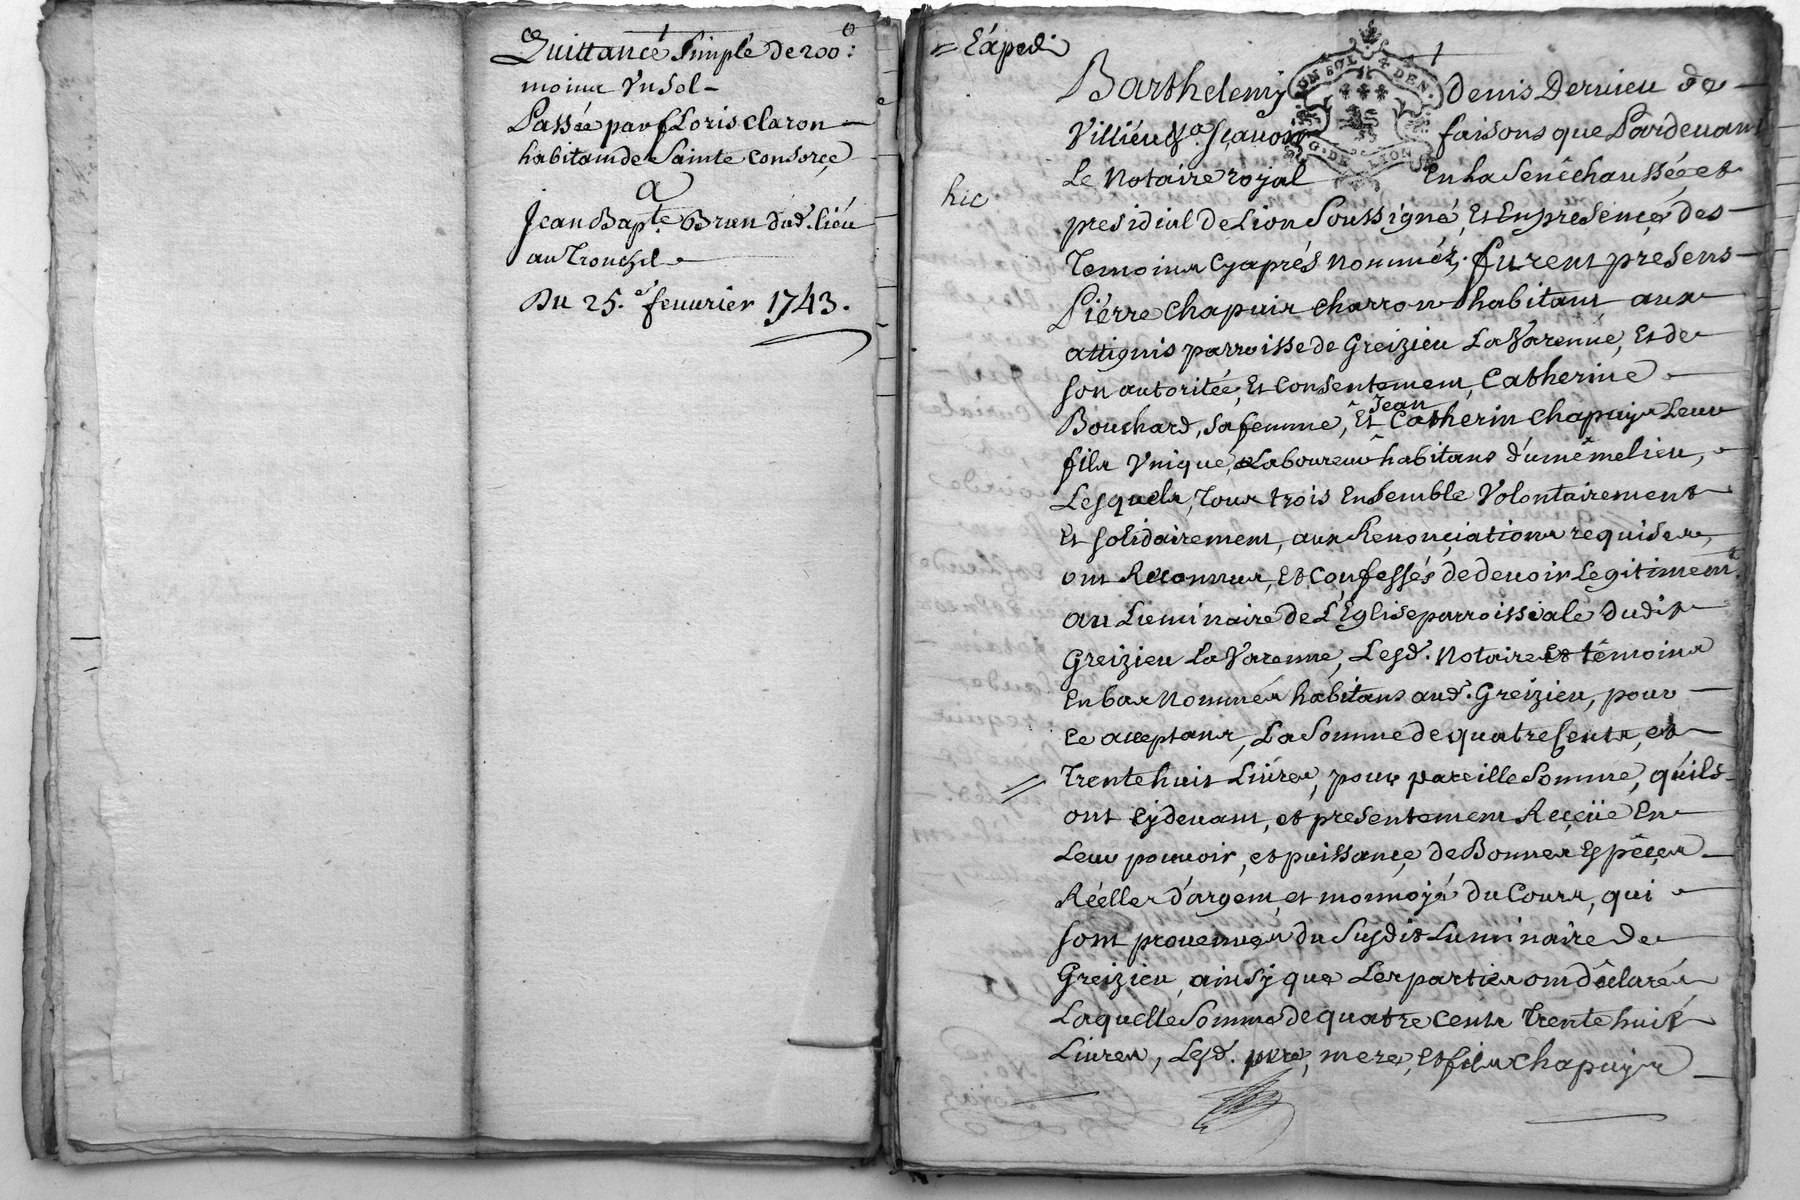 Quittance simple de 200#
moins un sol
Passée par Floris Claron
habitant de Sainte Consorce
a
Jean Bapte. Brun dud. lieu
au Tronchil
Du 25e. feuurier 1743.
= Expedi
Barthelemy denis Deruieu de
Villieu &a. sçauoir faisons que Pardeuant
Le Notaire royal En La Senéchaussée et
hic
presidial de Lion Soussigné, Et En presence des
Temoins Cy aprés nommés, furent presens
Piérre Chapuis charron habitant aux
attignis parroisse de Greizieu La Varenne, Et de
son autoritée, Et Consentement, Catherine
Jean
Bouchard, sa femme, Et Catherin Chapuys Leur
fils Vnique, Laboureur habitans du même lieu,
Lesquels, Tous trois Ensemble Volontairement
Et solidairement, aux Renonciations requises,
ont Reconnus, Et Confessés de deuoir Legitimemt.
au Liéminaire de L'Eglise parroissiale dudit
Greizieu La Varenne, Lesd. Notaire Et têmoins
En bas Nommés habitans aud. Greizieu, pour
Ce acceptans, La Somme de quatre Cents, et
Trente huit Liures, pour pareille Somme, qu'ils
ont Cy deuant, et presentement Reçüe En
Leur pouuoir, et puissance de Bonnes Espéces
Réelles d'argent, et monnoyé du Cours, qui
sont prouenues du Susdit Luminaire de
Greizieu, ainsy que Les parties ont déclarés
Laquelle Somme de quatre Cents Trente huit
Liures, Lesd. pere, mere, Et fils Chapuys